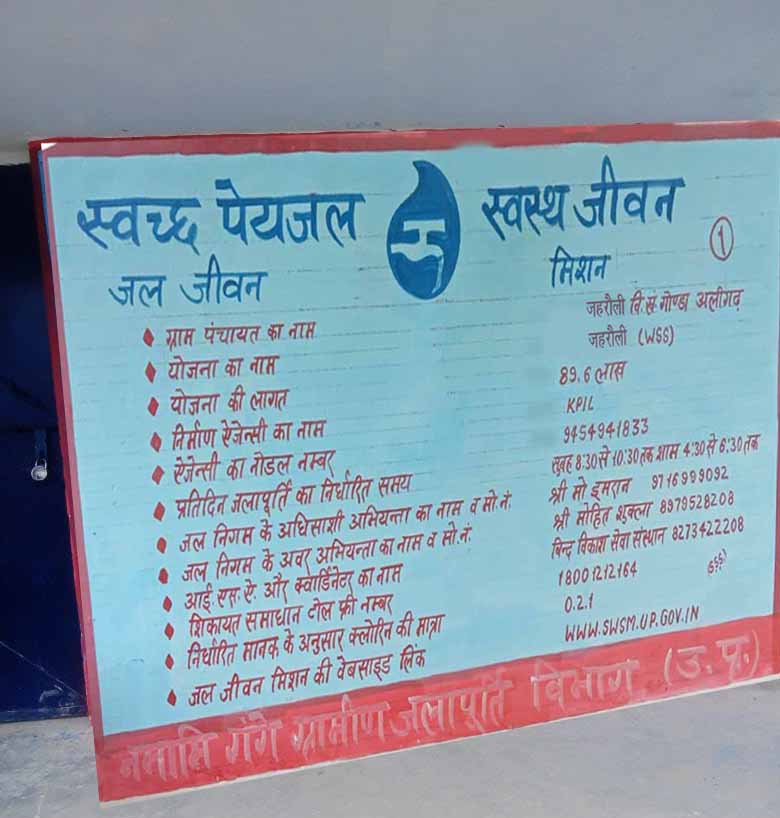 स्वच्छ पेयजल स्वस्थ जीवन
जल जीवन मिशन
1
ग्राम पंचायत का नाम जहरौली वि.खं. गोण्डा अलीगढ़
योजना का नाम जहरौली (WSS)
योजना की लागत 89.6 लास
निर्माण ऐजेन्सी का नाम KPIL
ऐजेन्सी का नोडल नम्बर 9454941833
प्रतिदिन जलापूर्ति का निर्धारित समय सुबह 8:30 से 10:30 तक शाम 4:30 से 6:30 तक
जल निगम के अधिसाशी अभियन्ता का नाम व मो.नं. श्री मो इमरान 9716999092
जल निगम के अवर अभियन्ता का नाम व मो.नं. श्री मोहित शुक्ला 8979528208
आई.एस.ऐ. और क्वार्डिनेटर का नाम बिन्द विकाश सेवा संस्थान 8273422208
शिकायत समाधान टोल फ्री नम्बर 18001212164
निर्धारित मानक के अनुसार क्लोरिन की मात्रा 0.2.1
जल जीवन मिशन की वेबसाइड लिंक WWW.SWSM.UP.GOV.IN
नमामि गंगे ग्रामीण जलापूर्ति विभाग (उ.प्र.)